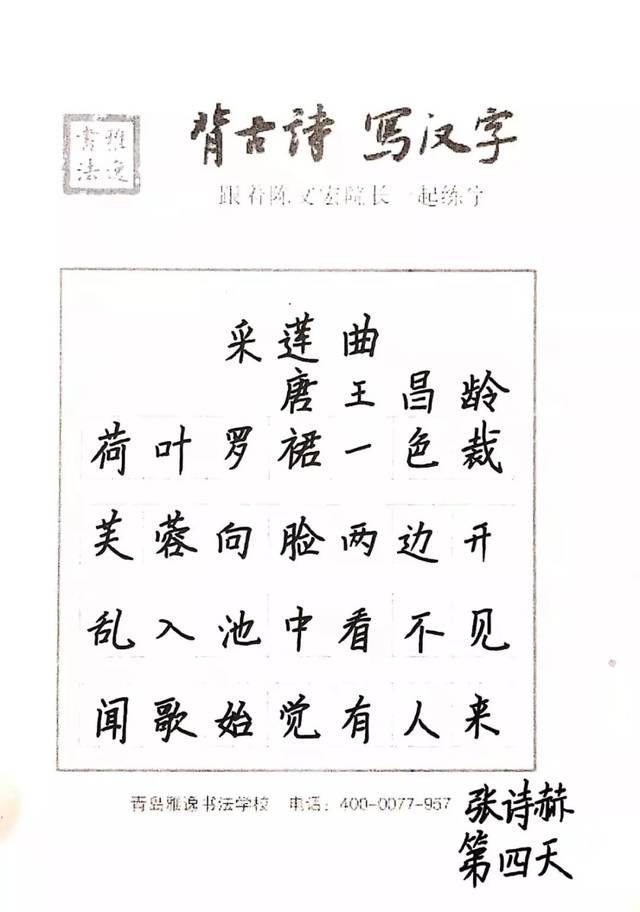 雅逸书法
背古诗 写汉字
跟着陈文宏院长一起练字
采莲曲
唐 王昌龄
荷叶罗裙一色裁
芙蓉向脸两边开
乱入池中看不见
闻歌始觉有人来
青岛雅逸书法学校 电话：400-0077-957
张诗赫
第四天